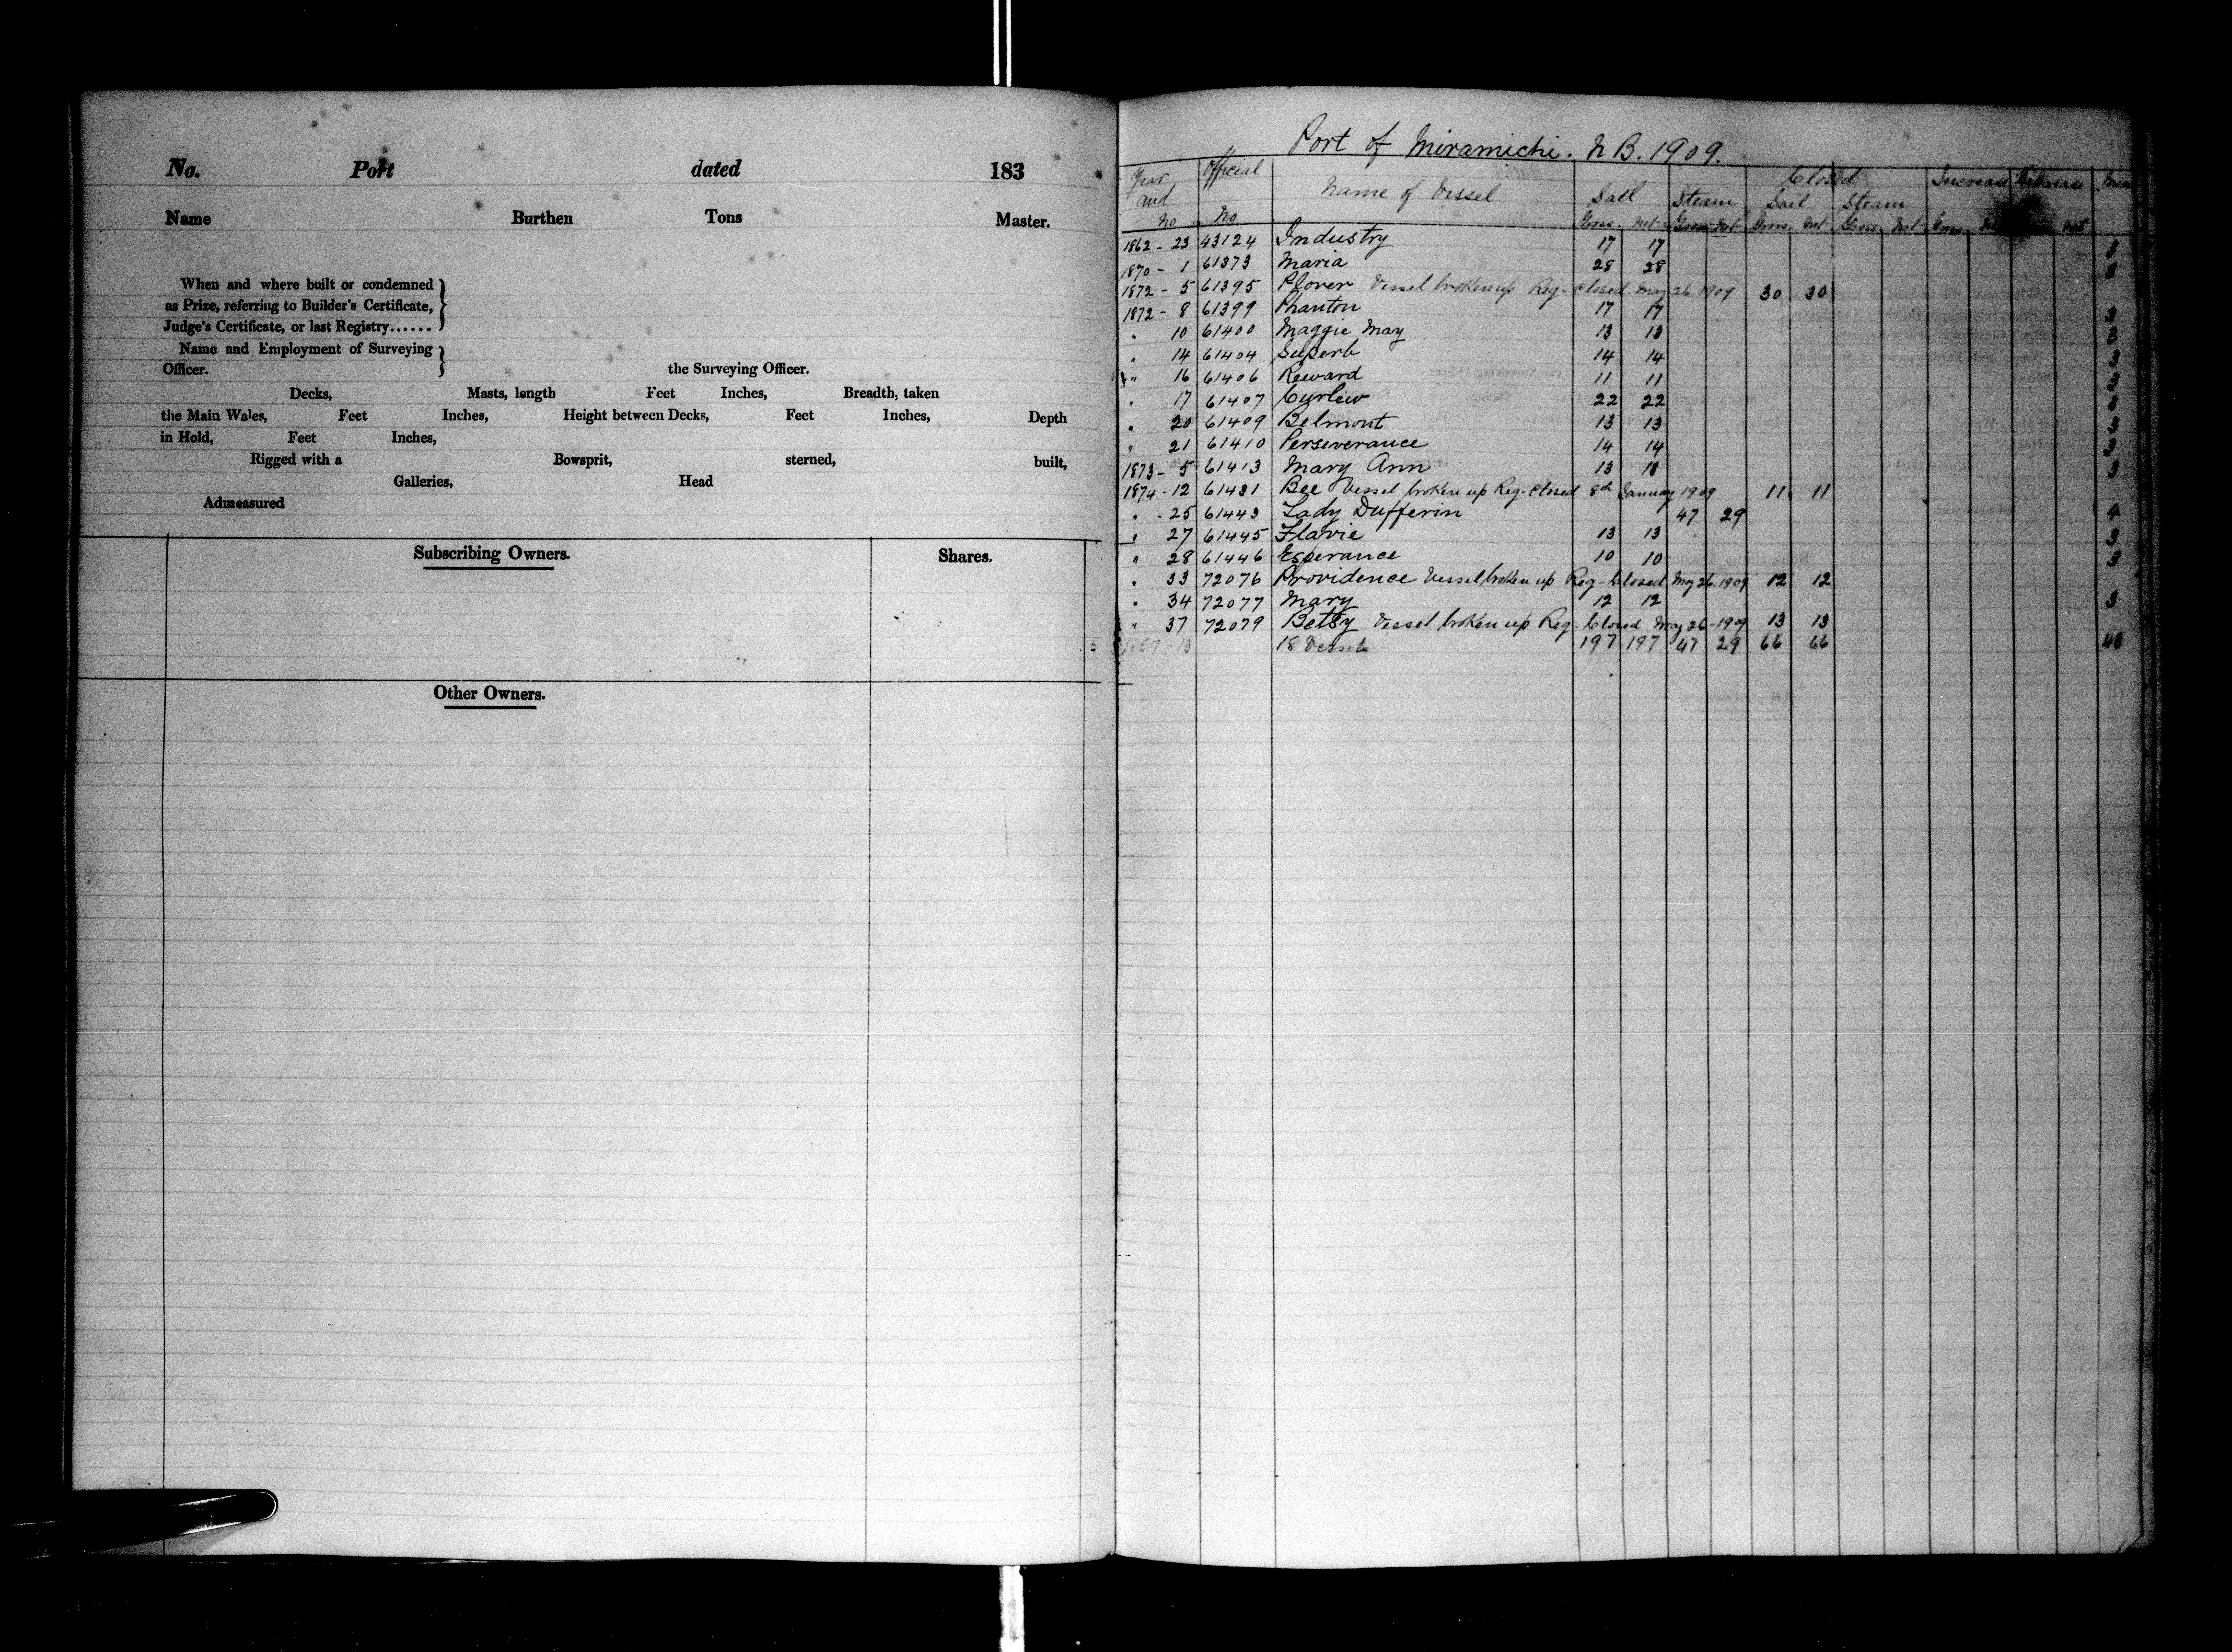 No. Port dated 183
Name Burthen Tons Master.
When and where built or condemned
as Prize, referring to Builder's Certificate,
Judge's Certificate, or last Registry......
Name and Employment of Surveying
Officer. the Surveying Officer.
Decks, Masts, length Feet Inches, Breadth, taken
the Main Wales, Feet Inches, Height between Decks, Feet Inches, Depth
in Hold, Feet Inches,
Rigged with a Bowsprit, sterned, built,
Galleries, Head
Admeasured
Subscribing Owners. Shares.
Other Owners.
Port of Miramichi. N B. 1909.
Year and No Official No Name of Vessel Sail Steam Closed Increase Decrease Men
Sail Steam
Gross. Net Gross Net Gross. Net Gross. Net Gross. Net
1862 - 23 43124 Industry 17 17 3
1870 - 1 61373 Maria 28 28 3
1872 - 5 61395 Plover Vessel broken up Reg - Closed. May 26. 1909 30 30
1872 - 8 61399 Phanton 17 17 3
" 10 61400 Maggie May 13 13 3
" 14 61404 Superb 14 14 3
" 16 61406 Reward 11 11 3
" 17 61407 Curlew 22 22 3
" 20 61409 Belmont 13 13 3
" 21 61410 Perseverance 14 14 3
1873 - 5 61413 Mary Ann 13 13 3
1874 - 12 61431 Bee Vessel broken up Reg - Closed 8th January 1909 11 11
" - 25 61443 Lady Dufferin 47 29 4
" 27 61445 Flavie 13 13 3
" 28 61446 Esperance 10 10 3
" 33 72076 Providence Vessel broken up Reg - Closed May 26. 1909 12 12
" 34 72077 Mary 12 12 3
" 37 72079 Betsy Vessel broken up Reg - Closed May 26 - 1909 13 13
18 Vessels 197 197 47 29 66 66